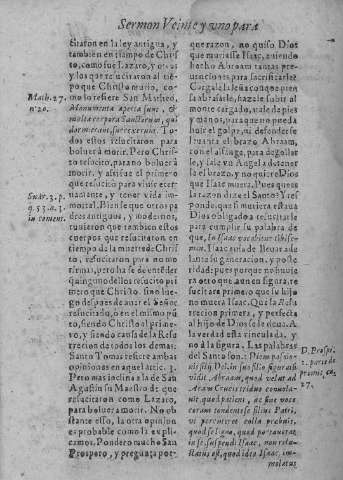 Sermon Veinte y uno para
citaron en la ley antigua, y
tambien en tiempo de Chris
to, como fue Lazaro, y otros
y los que resucitaron al tiẽ-
po que Christo murio, co
mo lo refiere San Matheo,
Math. 27.
nu. 20.
Monumenta aperta sunt, &
multa corpora Sanctorum, qui
dormierant, surrexerunt. To-
dos estos resucitaron para
bolver à morir. Pero Chris-
to resucitò, para no bolver à
morir, y assi fue el primero
que resucitò para vivir eter-
namente, y tener vida im-
mortal. Bien se que otros pa
Suar. 3. p.
q. 53. a. 3.
in coment.
dres antiguos, y modernos,
tuvieron que tambien estos
cuerpos que resucitaron en
tiempo de la muerte de Chris
to, resucitaron para no mo
rirmas, pero ha se de entẽder
que ninguno dellos resucitò pri
mero que Christo, sino lue-
go despues de aver el Señor
resucitado, ò en el mismo pũ
to, siendo Christo el prime-
ro, y siendo causa de la Resu
rreccion de todos los demas.
Santo Tomas refiere ambas
opiniones en aquel artic. 3.
Pero mas inclina à la de San
Agustin su Maestro de que
resucitaron como Lazaro,
para bolver à morir. No ob
stante esso, la otra opinion
es probable como la expli-
camos. Ponderò mucho San
Prospero, y pregunta por-
que razon, no quiso Dios
que muriesse Isaac, aviendo
hecho Abraam tantas pre-
venciones, para sacrificarle?
Cargale la leña con que pien
sa abrasarle, hazele subir al
monte cargado, atale de pies
y manos, para que no pueda
huir el golpe, ni defenderse
levanta el brazo Abraam,
con el alfange, para degollar
le, y sale un Angel à detener
la el brazo, y no quiere Dios
que Isaac muera. Pues que es
la razon dize el Santo? Y res
ponde, que si muriera estava
Dios obligado à resucitarle
para cumplir su palabra de
que, In Isaac vocabitur tibi se-
men. Isaac avia de llevar ade
lante su generacion, y poste
ridad: pues porque no huvie
ra otro que aun en figura, re
sucitara primero que su hijo
no muera Isaac. Que la Resu
rreccion primera, y perfecta
al hijo de Dios se le deva. A
la verdad està vinculada, y
no à la figura. Las palabras
D. Prosp.
2. parte de
promis. ca.
17.
del Santo son: Diem passio-
nis filij Dei, in suo filio figurasti
vidit Abraam, quod velut ad
Aram Crucis traditus convolu-
tus, quod patienti, ac sine voce
coram tondente se filius Patri,
ut periret è colla prabuit,
quod se signo, quod portavit at
in se, suspendi Isaac, non tru-
citatus est, quod ideo Isaac, im-
molatus